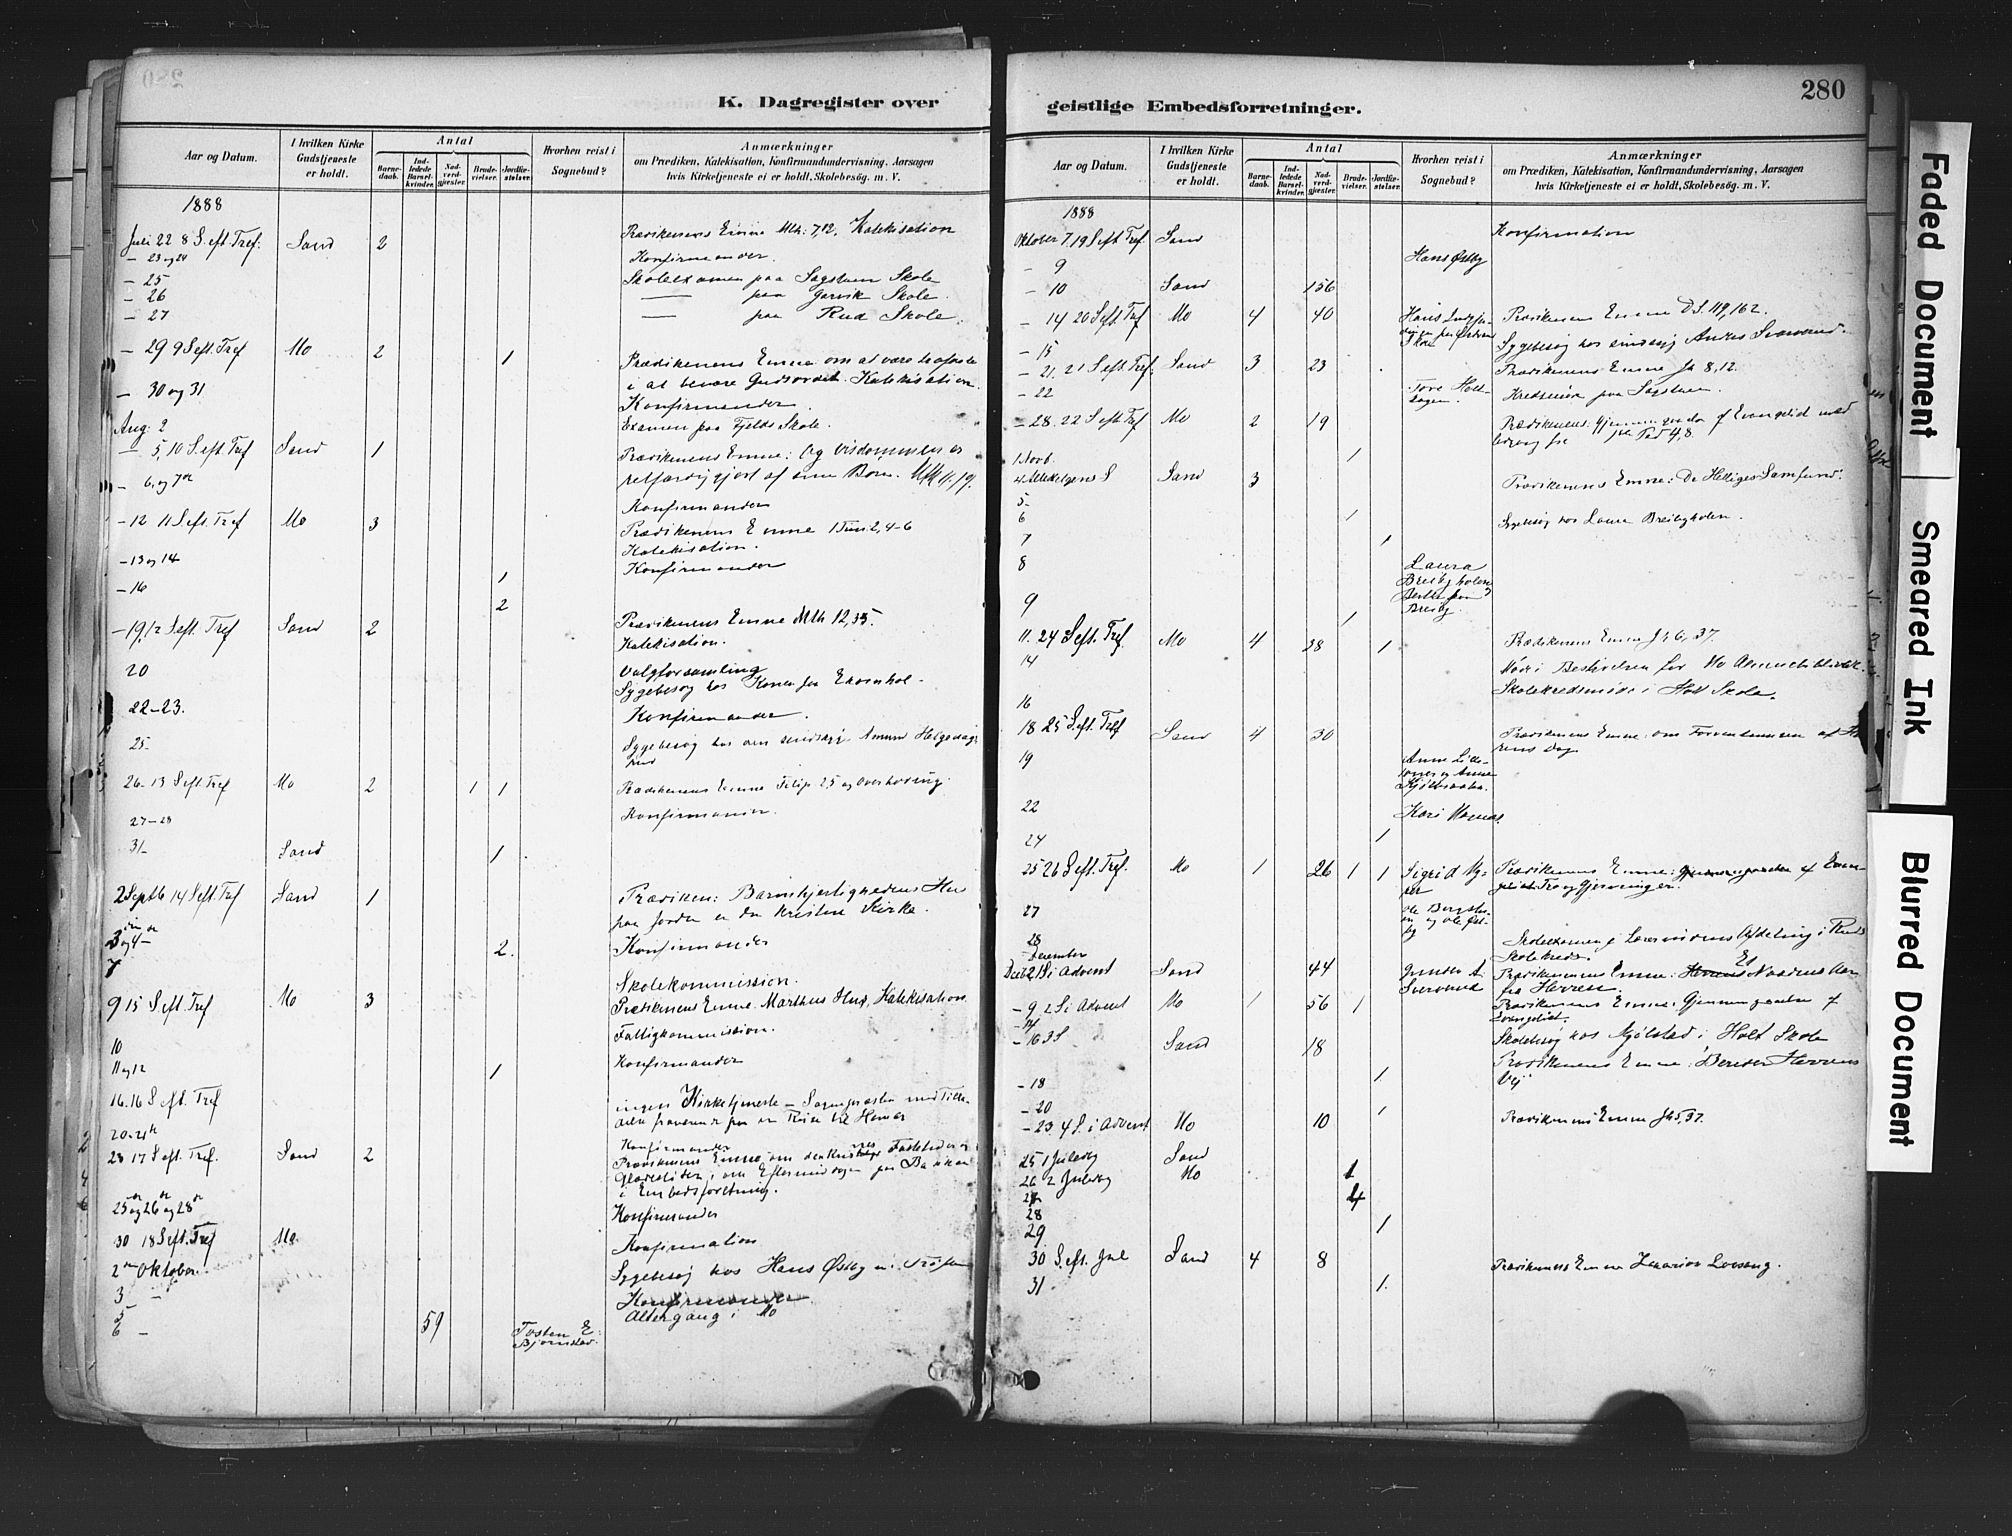 K. Dagregister over
Aar og Datum.
I hvilken Kirke Gudstjeneste er holdt.
Antal
Barnedaab.
Indledede Barselkvinder.
Nadverdgjester.
Brudevielser.
Jordfæstelser.
Hvorhen reist i Sognebud?
Anmærkninger
om Prædiken, Katekisation, Konfirmandundervisning, Aarsagen
hvis Kirketjeneste ei er holdt, Skolebesøg. m. V.
1888
Juli 22 8 S. eft. Tref: Sand 2 Prædikenens Emne Mth: 7,12, Katekisation
- 23 og 24 Konfirmander.
- 25 Skoleexamen paa Sagstuen Skole
- 26 — paa Garvik Skole.
- 27 — paa Rud Skole.
- 29 9 S. eft. Tref Mo 2 1 Prædikenens Emne om at være trofaste
i at bevare Gudsordet. Katekisation.
- 30 og 31 Konfirmander.
Aug: 2 Examen paa Fjelds Skole.
- 5, 10 S. eft. Tref Sand 1 Prædikenens Emne: Og Visdommen er
retfærdiggjort af sine Børn. Mth 11,19.
- 6. og 7de Konfirmander
- 12 11 S. eft. Tref Mo 3 Prædikenens Emne 1 Tim 2, 4-6
Katekisation.
- 13 og 14 Konfirmander
- 16 1
2
- 19, 12 S. eft. Tref Sand 2 Prædikenens Emne Mth 12,35.
Katekisation.
20 Valgforsamling
Sygebesøg hos Konen paa Ekornhol.
22-23. Konfirmander.
25 Sygebesøg hos den sindssyge Amund
26- 13 S. eft. Tref Mo 2 1 1 Prædikenens Emne Filip 2,5 og Overhøring.
27-28 Konfirmander.
31- Sand 1
2 Septb 14 S. eft. Tref Sand 1 Prædiken: Barmhjertighedens Hus
paa Jorden er den kristne Kirke.
3 og 4 - 2. Konfirmander
7 Skolekommission.
9 15 S. eft. Tref Mo 3 Prædikenens Emne Marthas Hus, Katekisation
10 Fattigkommission.
11 og 12 1 Konfirmander
16. 16 S. eft. Tref ingen Kirketjeneste - Sognepræsten med Tilladelse
fraværende paa en Reise til Hamar
20-21de Konfirmander
23 17 S. eft. Tref. Sand 2 Prædikenens Emne om den Kristnes Fastetider og
Glædestider, om Eftermiddagen paa
i Embedsforretning.
25 og 26 og 28 Konfirmander
30 18 S. eft. Tref Mo Konfirmation
2den Oktober. Sygebesøg hos Hans Østby i
3 - Konfirmander
5 Altergang i Mo
6 - 59 Tosten E. Bjørnstad.
geistlige Embedsforretninger.
280
Aar og Datum.
I hvilken Kirke Gudstjeneste er holdt.
Antal
Barnedaab.
Indledede Barselkvinder.
Nadverdgjester.
Brudevielser.
Jordfæstelser.
Hvorhen reist i Sognebud?
Anmærkninger
om Prædiken, Katekisation, Konfirmandundervisning, Aarsagen
hvis Kirketjeneste ei er holdt, Skolebesøg. m. V.
1888
Oktober 7. 19 S. eft Tref Sand Konfirmation
- 9 Hans Østby
- 10 Sand 156
- 14 20 S. eft. Tref Mo 4 40 Hans Prædikenens Emne DS. 119, 162.
- 15 Sygebesøg hos sindssyg
- 21, 21 S. eft. Tref. Sand 3 23 Prædikenens Emne Jh 8,12.
- 22 Tore Kredsmøde paa Sagstuen
- 28. 22 S. eft. Tref Mo 2 19 Prædikenens: Gjennemgaaelse af Evangeliet med
1 Novb. 1
4 Allehelgens S Sand 3 Prædikenens Emne: De Helliges Samfund.
5-
6 1 Sygebesøg hos Laura Breibyholen.
7 1
8 Laura Breibyholen
9 Breiby. 1
11. 24 S. eft. Tref. Mo 4 38 1 Prædikenens Emne Jh 6, 37.
14 Møde i Bestyrelsen for Mo Almuebibliotek.
16 Skolekredsmøde i Holt Skole.
18 25 S. eft. Tref Sand 4 30 Prædikenens Emne: om Forventningen af Herrens
Dag
19 Anne
22 Kari
24 1
25 26 S. eft. Tref. Mo 1 26 1 1 Sigrid Prædikenens Emne: Gjennemgaaelse af Evangeliet
27 Ole og Ole Østby
28 Skoleexamen i Lærerindens Afdeling i Ruds
Skolekreds.
December
Decb 2 1 S i Advent Sand 44 Gunder A. Prædikenens Emne: Et Naadens Aar
fra Herren.
- 9 2 S i Advent Mo 1 56 1 Prædikenens Emne: Gjennemgaaelse af
Evangeliet.
- 14 Skolebesøg hos Mjølstad i Holt Skole
- 16 3 S Sand 18 Prædikenens Emne: Bereder Herrens
Vej
- 18 1.
- 20 1
- 23 4 S. i Advent Mo 10 Prædikenens Emne Jh 5, 37.
25 1 Juledag Sand
26 2 Juledag Mo 1
27 4
28
29 1
30 S. eft. Jul Sand 4 8 Prædikenens Emne Zakarias Lovsang.
31 1.
Faded Document
Smeared Ink
Blurred Document